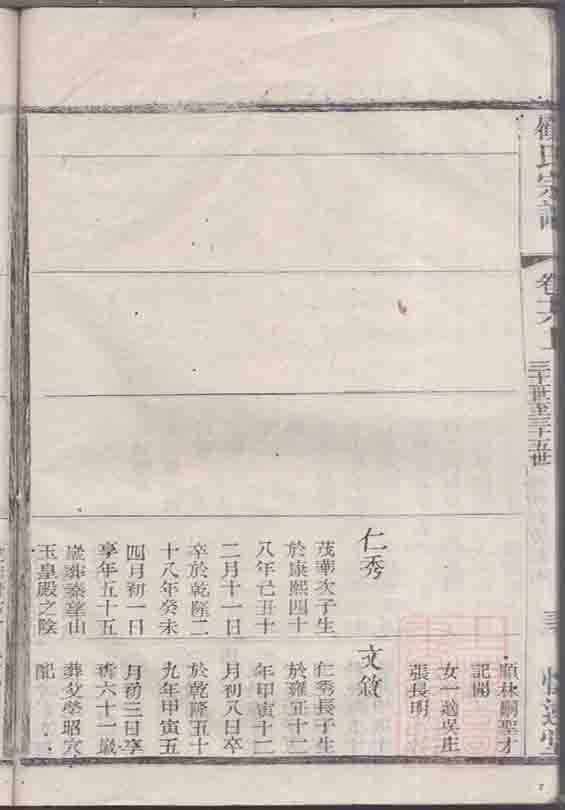 氏宗譜
卷十六上
三十世至三十五世
仁秀
茂華次子生
於康熙四十
八年己丑十
二月十一日
卒於乾隆二
十八年癸未
四月初一日
享年五十五
歲葬秦望山
玉皇殿之陰
林嗣聖才
記開
女一適吳庄
張長明
文敘
仁秀長子生
於雍正十二
年甲寅十二
月初八日卒
於乾隆五十
九年甲寅五
月初三日享
壽六十一歲
葬父塋昭穴
配